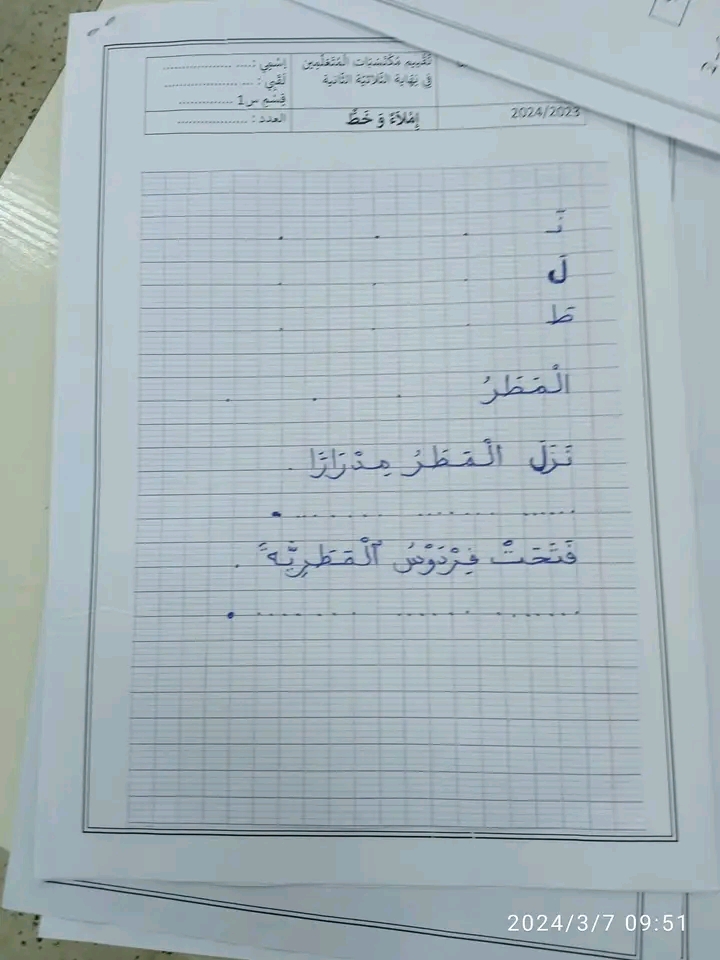 تَقْيِيم مُكْتَسَبَات الْمُتَعَلِّمِين
فِي نِهَايَة الثُّلَاثِيَّة الثَّانية
إِسْمِي : .... ..................
لَقَبِي : .... ..................
قِسْم س1 ................
2024/2023
إِمْلَاءٌ وَ خَطٌّ
العدد : ..................
نَـ . . .
لَ . . .
طَـ . . .
الْمَطَرُ . . .
نَزَلَ الْمَطَرُ مِدْرَارًا .
فَتَحَتْ فِرْدَوْسُ الْمَطَرِيَّةَ .
2024/3/7 09:51